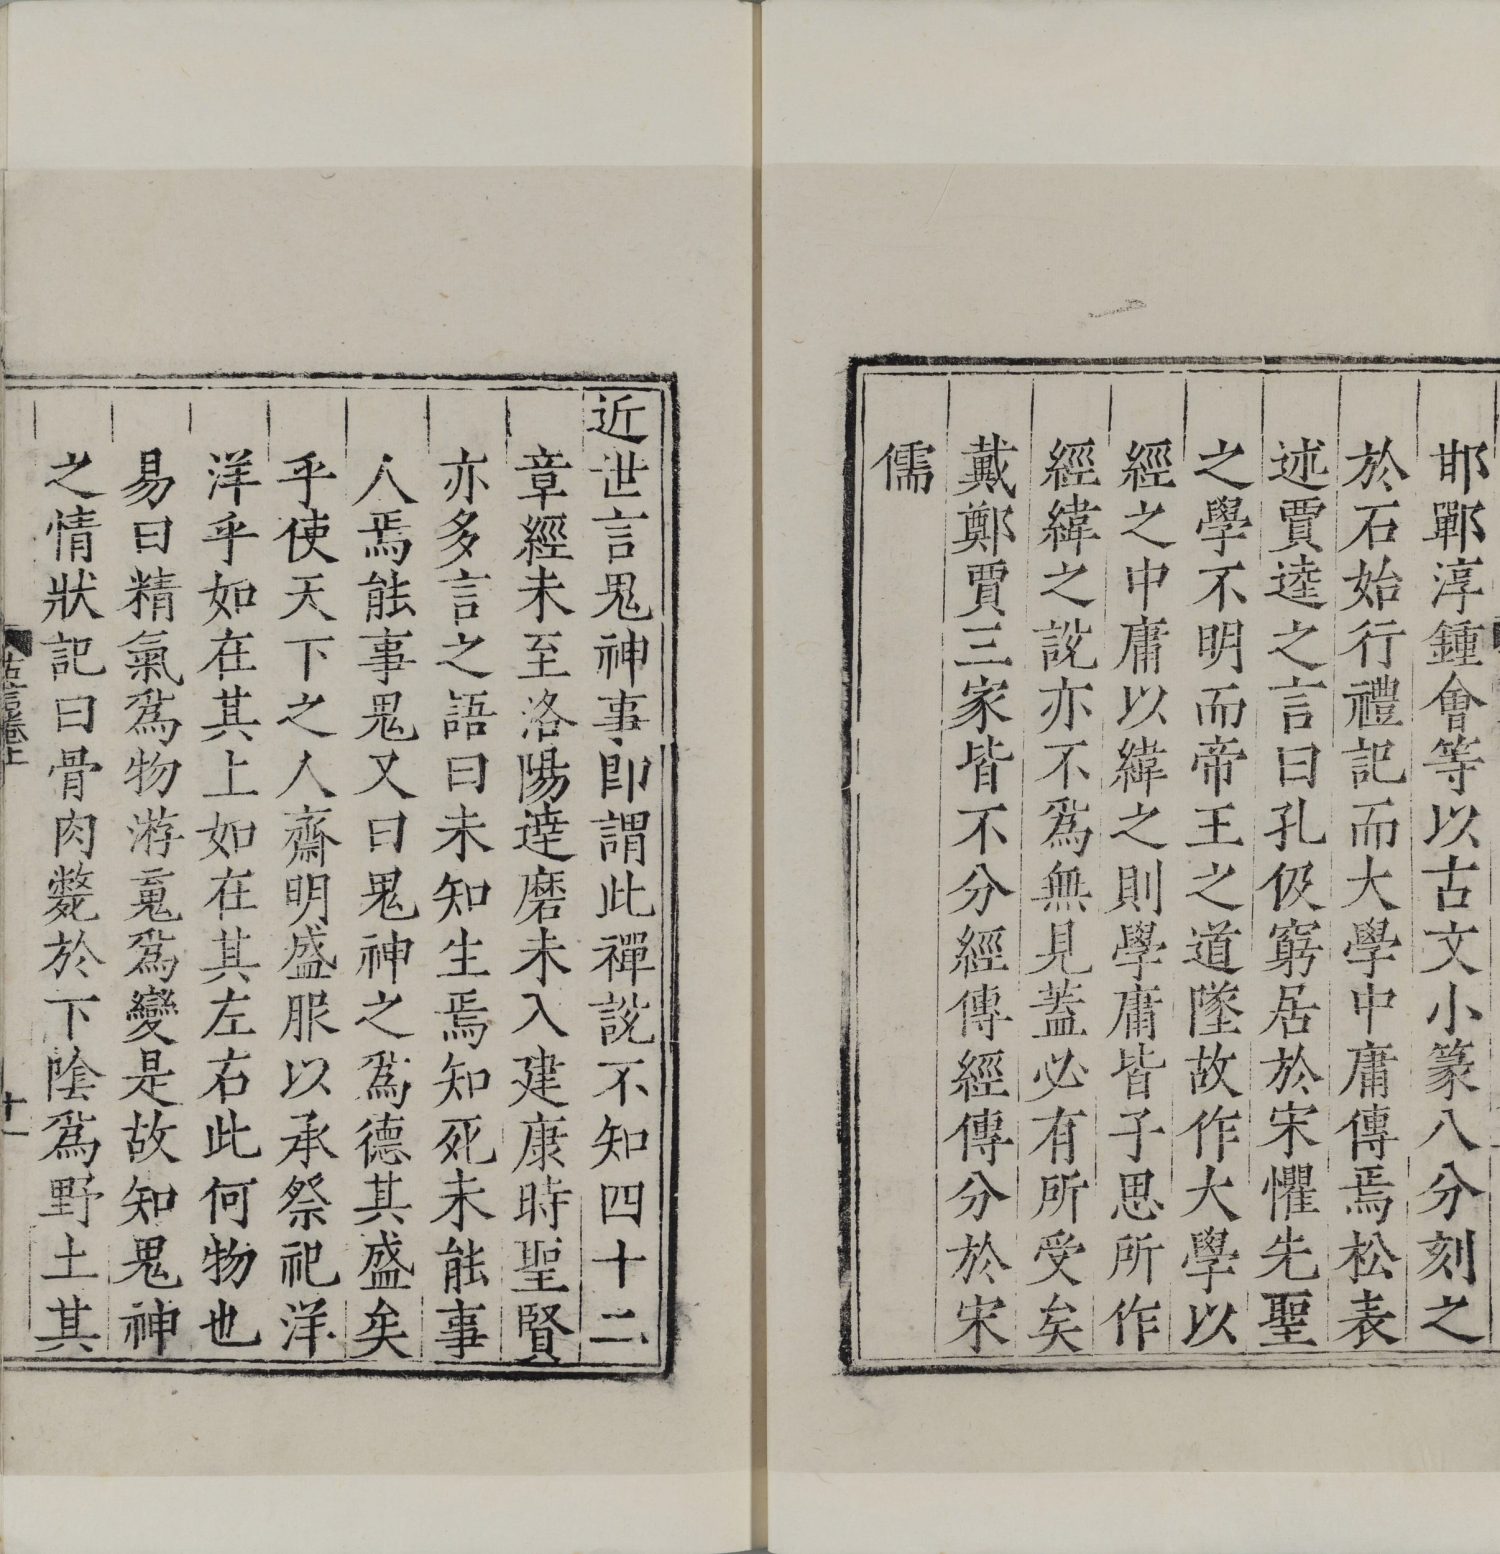 邯鄲淳鍾會等以古文小篆八分刻之
於石始行禮記而大學中庸傳焉松表
述賈逵之言曰孔伋窮居於宋懼先聖
之學不明而帝王之道墜故作大學以
經之中庸以緯之則學庸皆子思所作
經緯之說亦不爲無見蓋必有所受矣
戴鄭賈三家皆不分經傳經傳分於宋
儒
近世言鬼神事卽謂此禪說不知四十二
章經未至洛陽達磨未入建康時聖賢
亦多言之語曰未知生焉知死未能事
人焉能事鬼又曰鬼神之爲德其盛矣
乎使天下之人齋明盛服以承祭祀洋
洋乎如在其上如在其左右此何物也
易曰精氣爲物游䰟爲變是故知鬼神
之情狀記曰骨肉斃於下陰爲野土其
古言卷上
十一